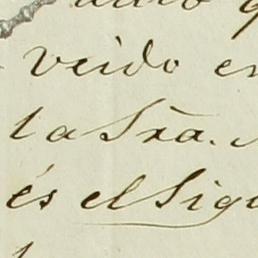 veido en
la Sra.
és el Sigu